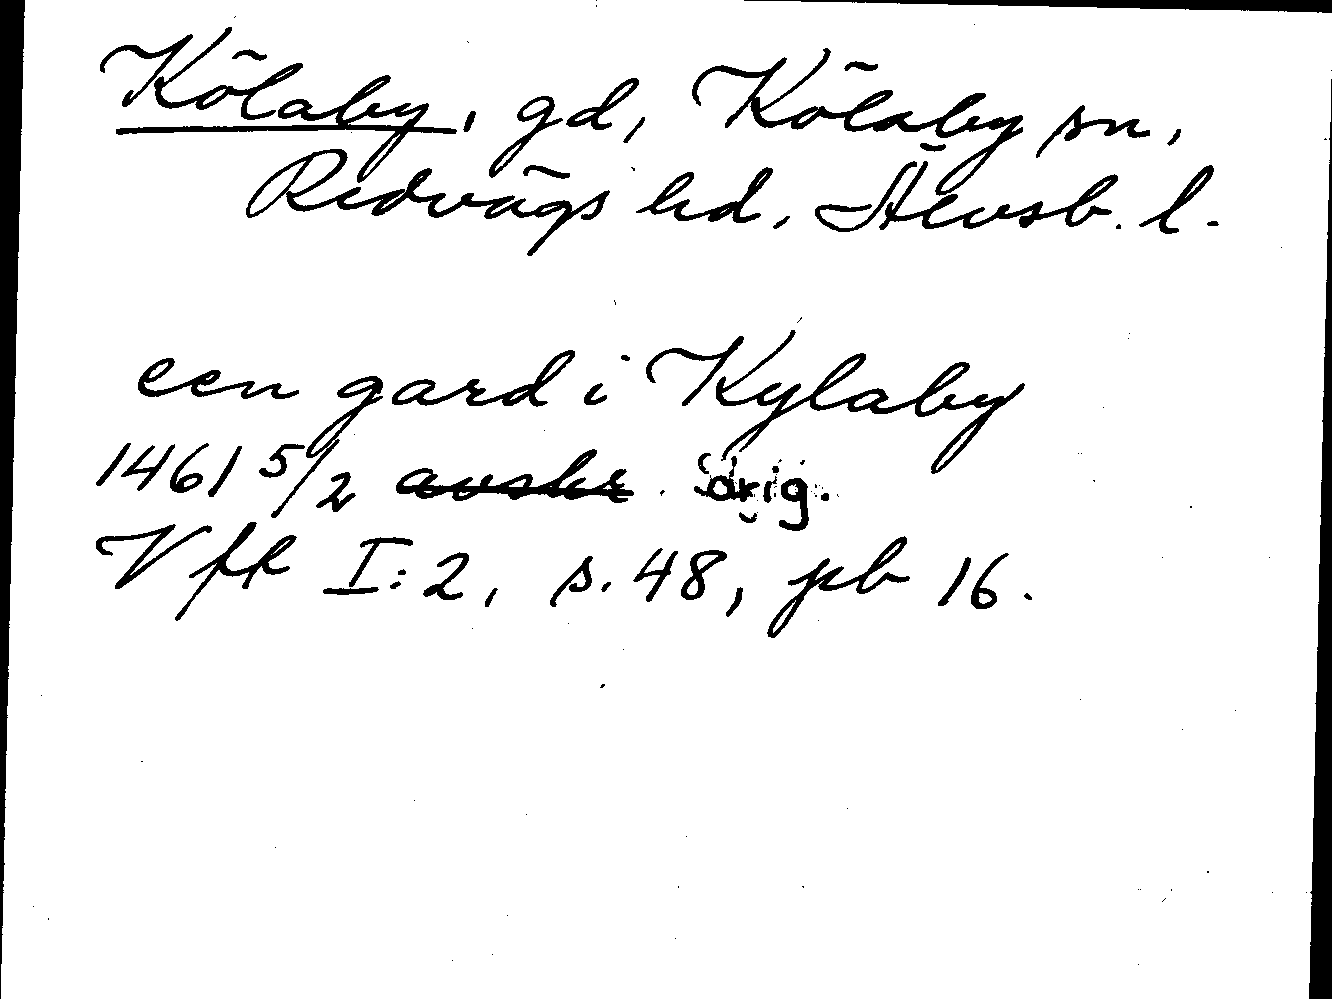 Kölaby, gd, Kölaby sn,
Redvägs hd, Älvsb. l.
een gard i Kylaby
1461 5/2 avskr. orig.
Vfk I:2, s. 48, pb 16.